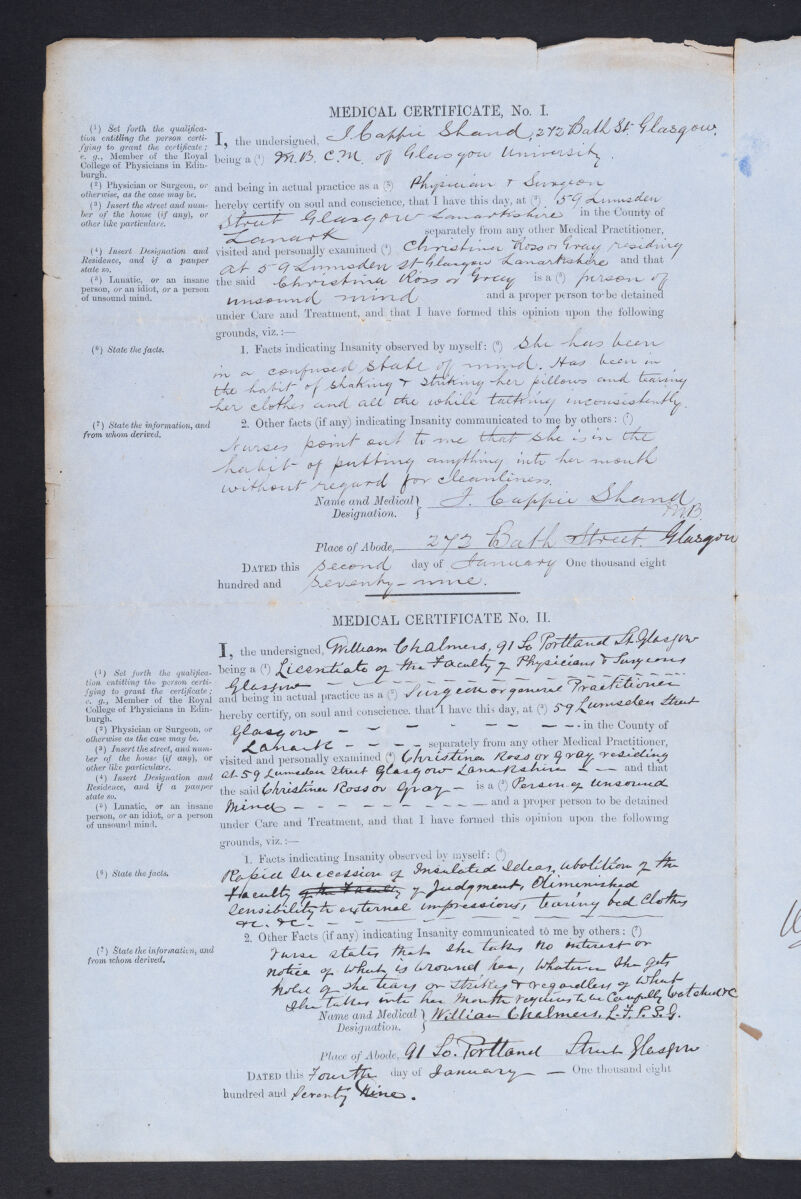 MEDICAL CERTIFICATE, No. I.
(1) Set forth the qualifica-
tion entitling the person certi-
fying to grant the certificate;
e. g., Member of the Royal
College of Physicians in Edin-
burgh.
(2) Physician or Surgeon, or
otherwise, as the case may be.
(3) Insert the street and num-
ber of the house (if any), or
other like particulars.
(4) Insert Designation and
Residence, and if a pauper
state so.
(5) Lunatic, or an insane
person, or an idiot, or a person
of unsound mind.
(6) State the facts.
(7) State the information, and
from whom derived.
I, the undersigned, J. Cappie Shand, 272 Bath St. Glasgow.
being a (1) M.B. C.M. of Glasgow University.
and being in actual practice as a (2) Physician & Surgeon
hereby certify on soul and conscience, that I have this day, at (3) 59 Lumsden
Street Glasgow Lanarkshire in the County of
Lanark separately from any other Medical Practitioner,
visited and personally examined (4) Christina Ross or Gray residing
at 59 Lumsden St Glasgow Lanarkshire and that
the said Christina Ross or Gray is a (5) person of
unsound mind and a proper person to be detained
under Care and Treatment, and that I have formed this opinion upon the following
grounds, viz.:—
1. Facts indicating Insanity observed by myself: (6) She has been
in a confused state of mind. Has been in
the habit of shaking & striking her pillows and tearing
her clothes and all the while talking inconsistently.
2. Other facts (if any) indicating Insanity communicated to me by others: (7)
Nurses point out to me that she is in the
habit of putting anything into her mouth
without regard for cleanliness.
Name and Medical Designation. J. Cappie Shand
M.B.
Place of Abode, 272 Bath Street. Glasgow
DATED this second day of January One thousand eight
hundred and seventy-nine.
MEDICAL CERTIFICATE No. II.
(1) Set forth the qualifica-
tion entitling the person certi-
fying to grant the certificate;
e. g., Member of the Royal
College of Physicians in Edin-
burgh.
(2) Physician or Surgeon, or
otherwise as the case may be.
(3) Insert the street, and num-
ber of the house (if any), or
other like particulars.
(4) Insert Designation and
Residence, and if a pauper
state so.
(5) Lunatic, or an insane
person, or an idiot, or a person
of unsound mind.
(6) State the facts.
(7) State the information, and
from whom derived,
I, the undersigned, William Chalmers, 91 So Portland St. Glasgow
being a (1) Licentiate of the Faculty of Physicians & Surgeons
Glasgow
and being in actual practice as a (2) Surgeon or general Practitioner
hereby certify, on soul and conscience, that I have this day, at (3) 59 Lumsden Street
Glasgow in the County of
Lanark separately from any other Medical Practitioner,
visited and personally examined (4) Christina Ross or Gray residing
at 59 Lumsden Street Glasgow Lanarkshire and that
the said Christina Ross or Gray is a (5) Person of unsound
Mind and a proper person to be detained
under Care and Treatment, and that I have formed this opinion upon the following
grounds, viz.:—
1. Facts indicating Insanity observed by myself: (6)
Rapid succession of Insulated Ideas, abolition of the
Faculty of the Faculty of Judgment, Diminished
Sensibility to external impressions, tearing bed clothes
&c. &c.
2. Other Facts (if any) indicating Insanity communicated to me by others: (7)
Nurse states that she takes no interest or
notice of what is around her, whatever she gets
hold of she tears or strikes & regardless of what
she takes into her mouth requires to be Carefully watched &c
Name and Medical Designation. William Chalmers, L.F.P.S.G.
Place of Abode, 91 So. Portland Street Glasgow
DATED this Fourth day of January — One thousand eight
hundred and Seventy Nine.